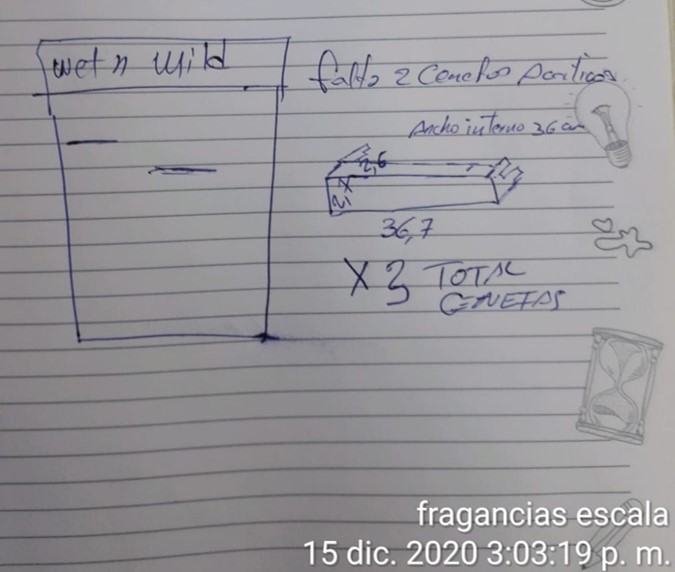 wet n wild
falta 2 Cenefas Acrilicas
Ancho interno 36 cm
2,6
2,1 X
36,7
X 3 TOTAL
CENEFAS
fragancias escala
15 dic. 2020 3:03:19 p. m.